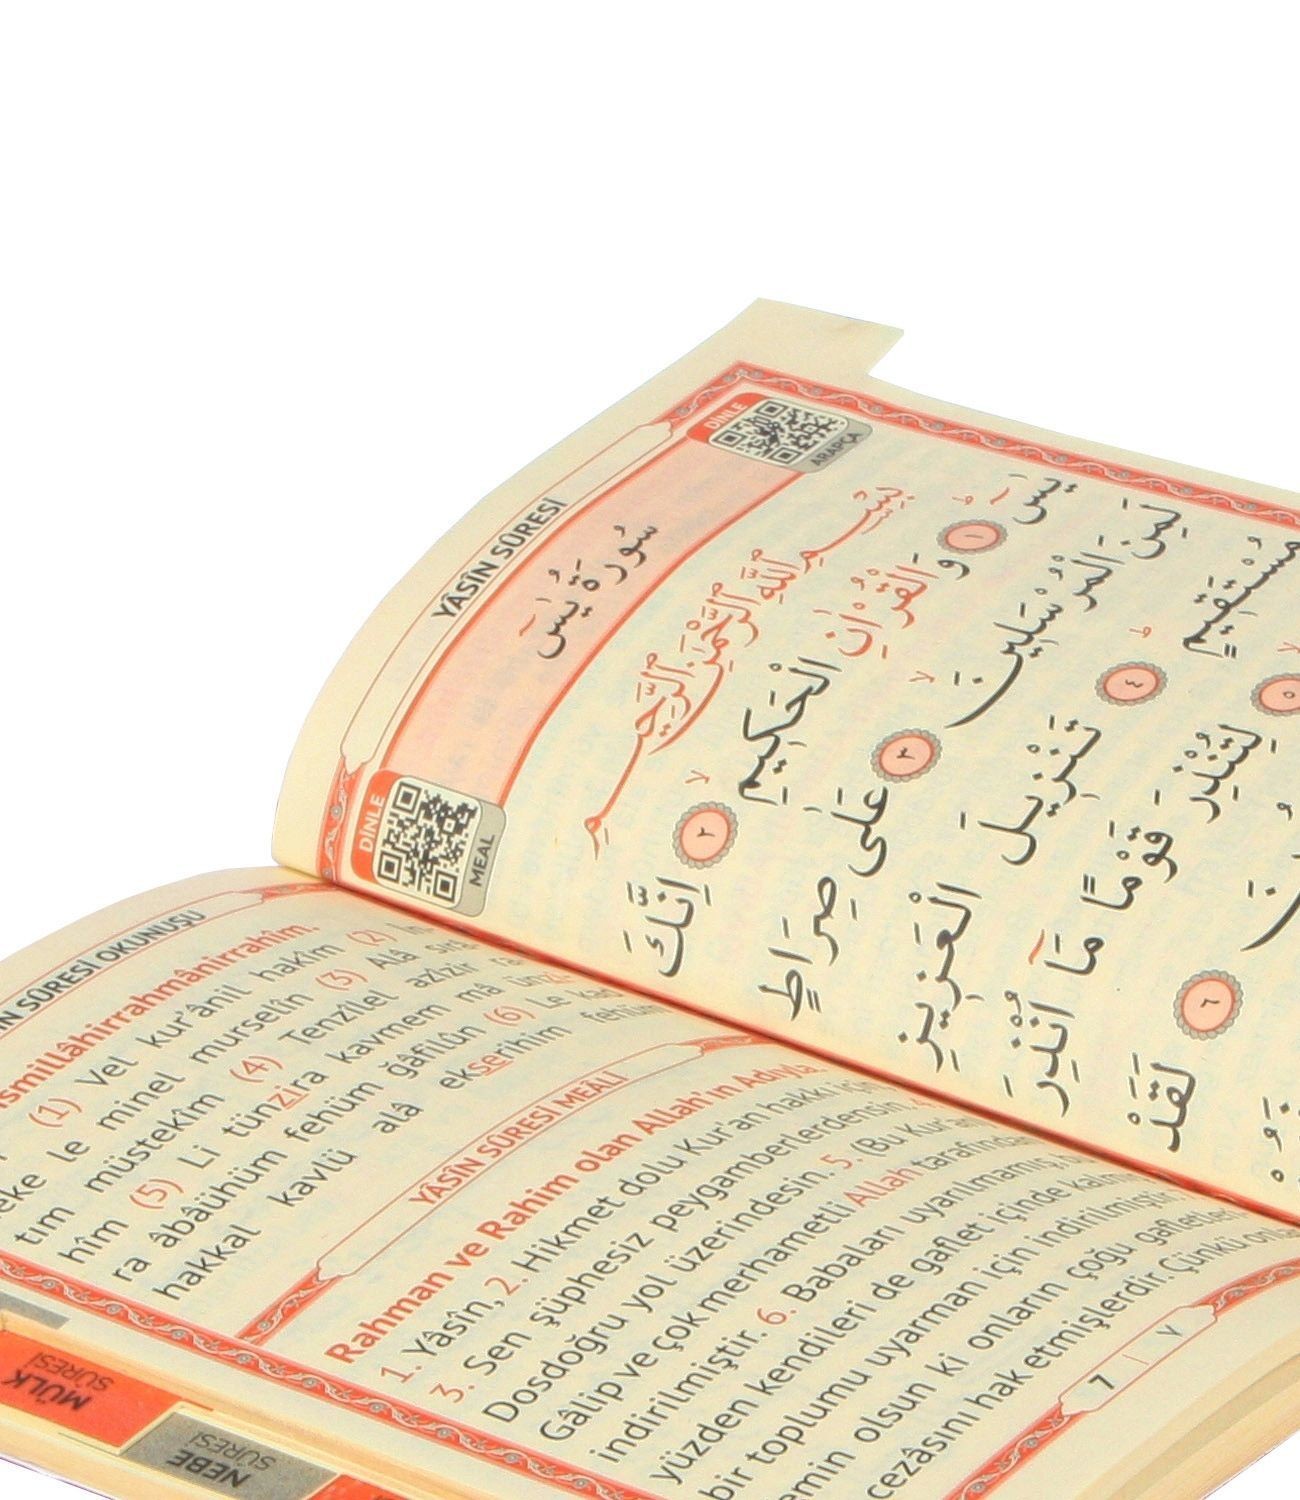 YÂSÎN SÛRESİ
DİNLE
ARAPÇA
سُورَةُ يٰسٓ
DİNLE
MEAL
بِسْمِ اللّٰهِ الرَّحْمٰنِ الرَّحِيمِ
يٰسٓ ۚ ١ وَالْقُرْاٰنِ الْحَكِيمِ ۙ ٢ اِنَّكَ
لَمِنَ الْمُرْسَلِينَ ۙ ٣ عَلٰى صِرَاطٍ
مُسْتَقِيمٍ ۜ ٤ تَنْزِيلَ الْعَزِيزِ
٥ لِتُنْذِرَ قَوْمًا مَٓا اُنْذِرَ
٦ لَقَدْ
SÛRESİ OKUNUŞU
(1) Vel kur'ânil hakîm (2) İn
neke le minel murselîn (3) Alâ sırâ
tım müstekîm (4) Tenzîlel azîzir ra
hîm (5) Li tünzira kavmem mâ ünzi
ra âbâühüm fehüm ğâfilûn (6) Le kad
hakkal kavlü alâ ekserihim fehüm
YÂSÎN SÛRESİ MEÂLİ
Rahman ve Rahim olan Allah'ın Adıyla.
1. Yâsîn, 2. Hikmet dolu Kur'an hakkı için
3. Sen şüphesiz peygamberlerdensin.
Dosdoğru yol üzerindesin. 5. (Bu Kur'an)
Gâlip ve çok merhametli Allah tarafından
indirilmiştir. 6. Babaları uyarılmamış,
yüzden kendileri de gaflet içinde
bir toplumu uyarman için indirilmiştir.
emin olsun ki onların çoğu gafletleri
cezâsını hak etmişlerdir. Çünkü
7 | ٧
MÜLK
SÛRESİ
NEBE
SÛRESİ